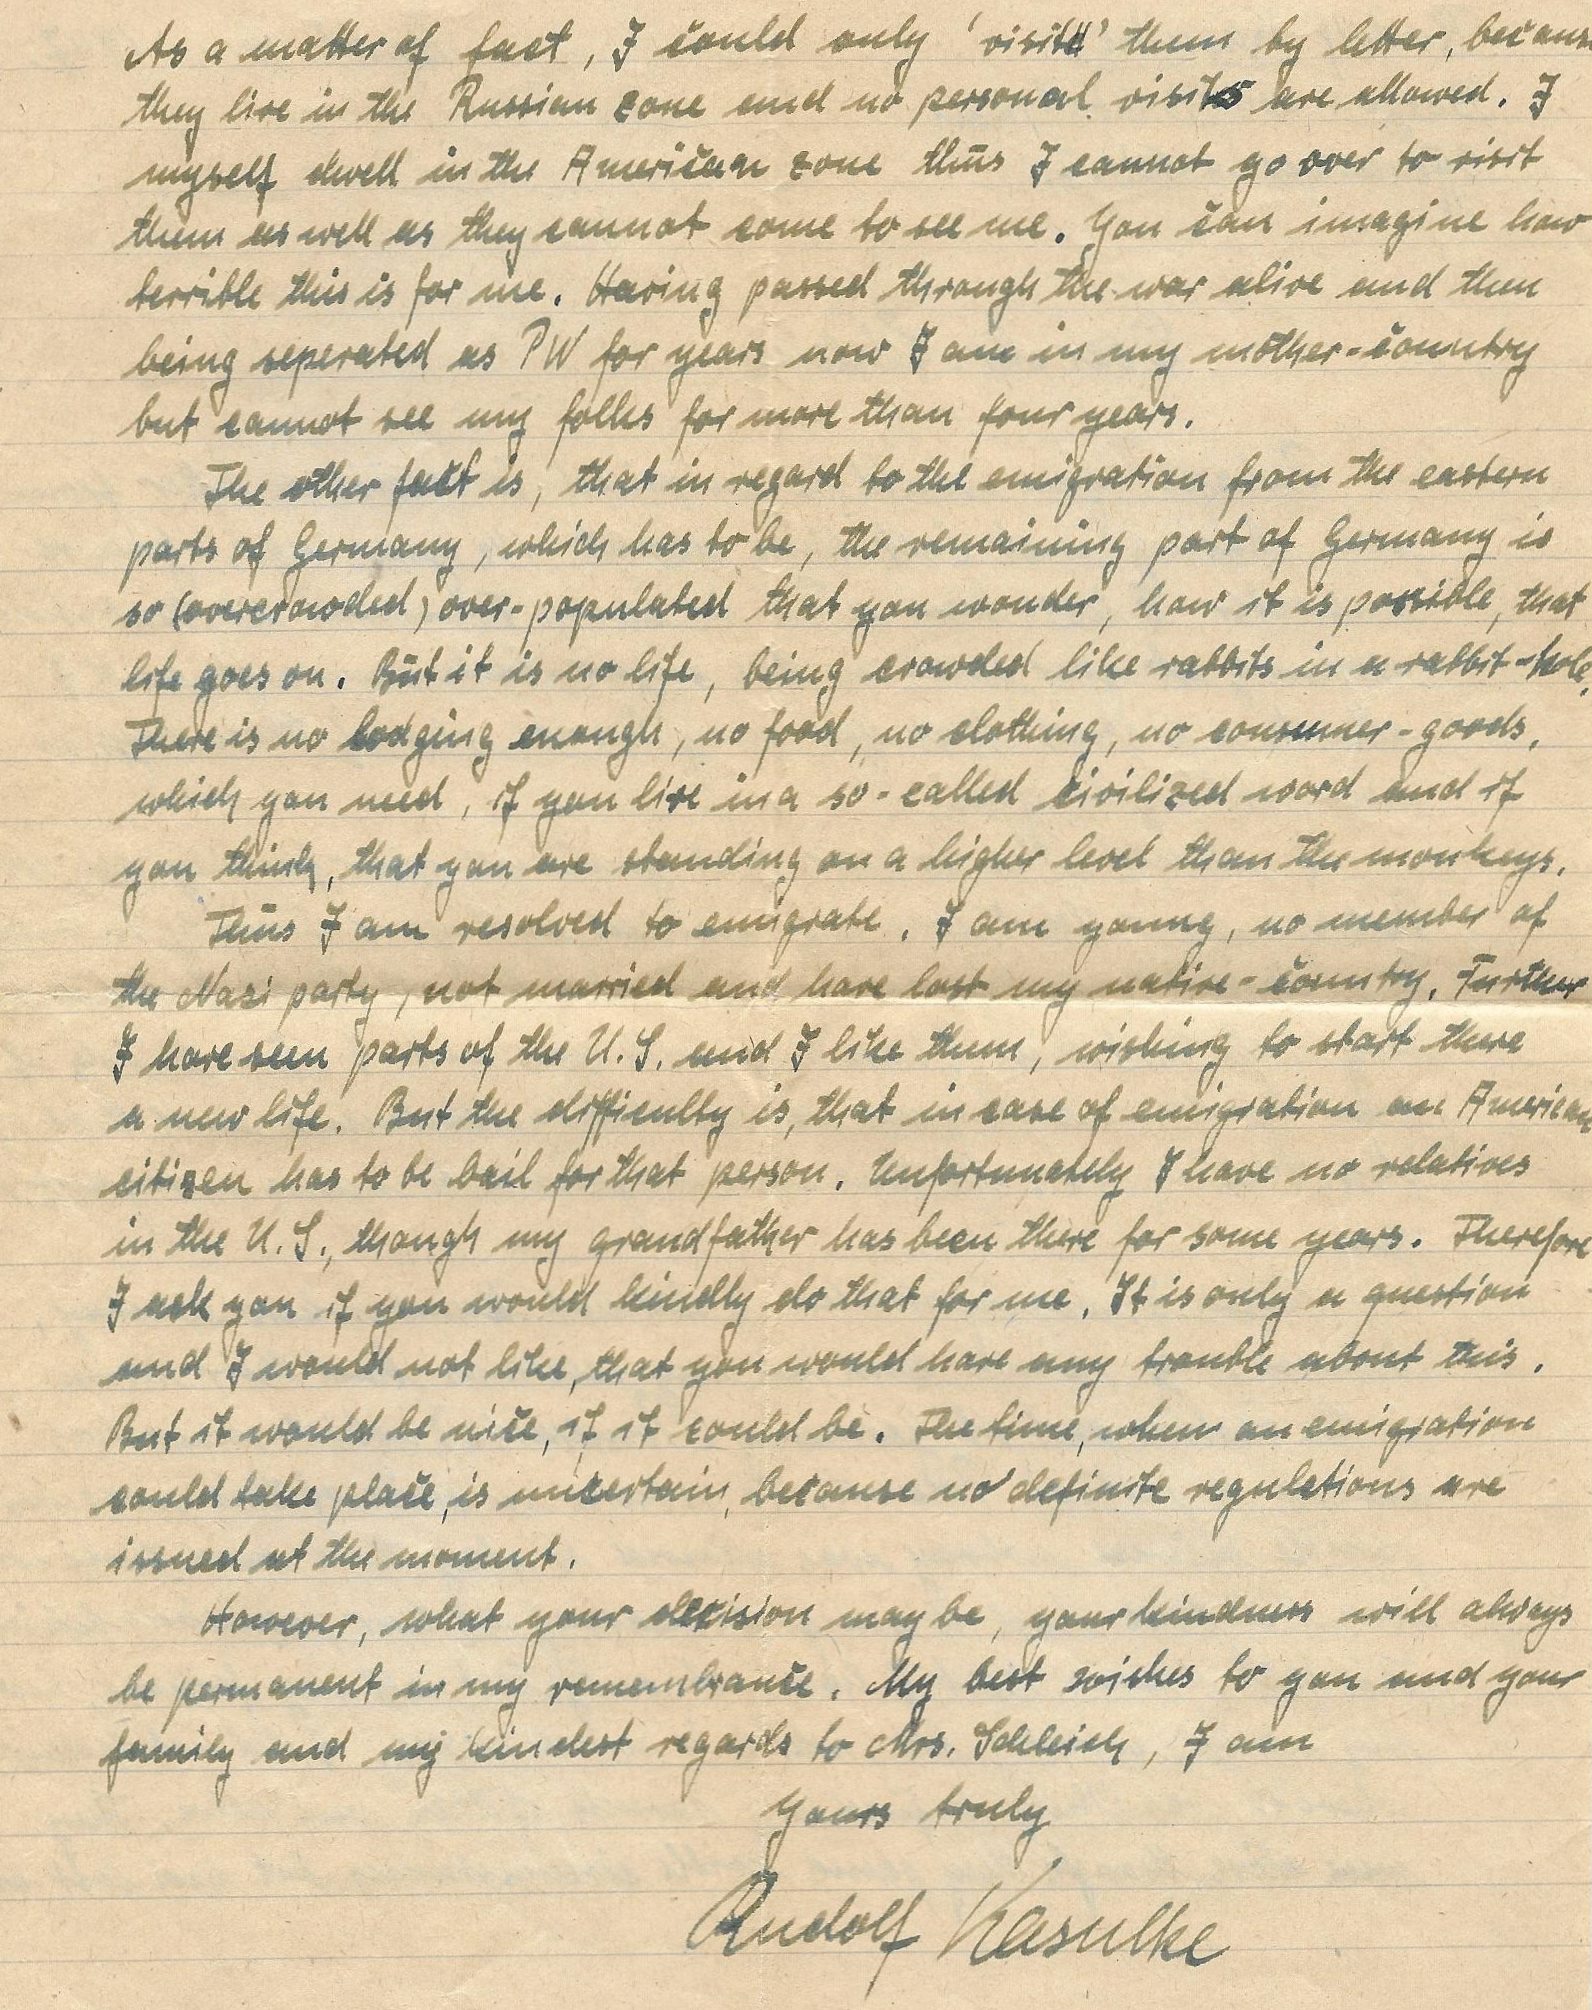 As a matter of fact, I could only 'visit' them by letter, because
they live in the Russian zone and no personal visits are allowed. I
myself dwell in the American zone thus I cannot go over to visit
them as well as they cannot come to see me. You can imagine how
terrible this is for me. Having passed through the war alive and then
being seperated as PW for years now I am in my mother-country
but cannot see my folks for more than four years.
The other fact is, that in regard to the emigration from the eastern
parts of Germany, which has to be, the remaining part of Germany is
so (overcrowded) over-populated that you wonder, how it is possible, that
life goes on. But it is no life, being crowded like rabbits in a rabbit-hole.
There is no lodging enough, no food, no clothing, no consumer-goods,
which you need, if you live in a so-called civilized word and if
you think, that you are standing on a higher level than the monkeys.
Thus I am resolved to emigrate. I am young, no member of
the Nazi party, not married and have lost my native-country. Further
I have seen parts of the U.S. and I like them, wishing to start there
a new life. But the difficulty is, that in case of emigration an American
citizen has to be bail for that person. Unfortunately I have no relatives
in the U.S., though my grandfather has been there for some years. Therefore
I ask you if you would kindly do that for me. It is only a question
and I would not like, that you would have any trouble about this.
But it would be nice, if it could be. The time, when an emigration
could take place, is uncertain, because no definite regulations are
issued at the moment.
However, what your decision may be, your kindness will always
be permanent in my remembrance. My best wishes to you and your
family and my kindest regards to Mrs. Schleich, I am
Yours truly
Rudolf Kasulke